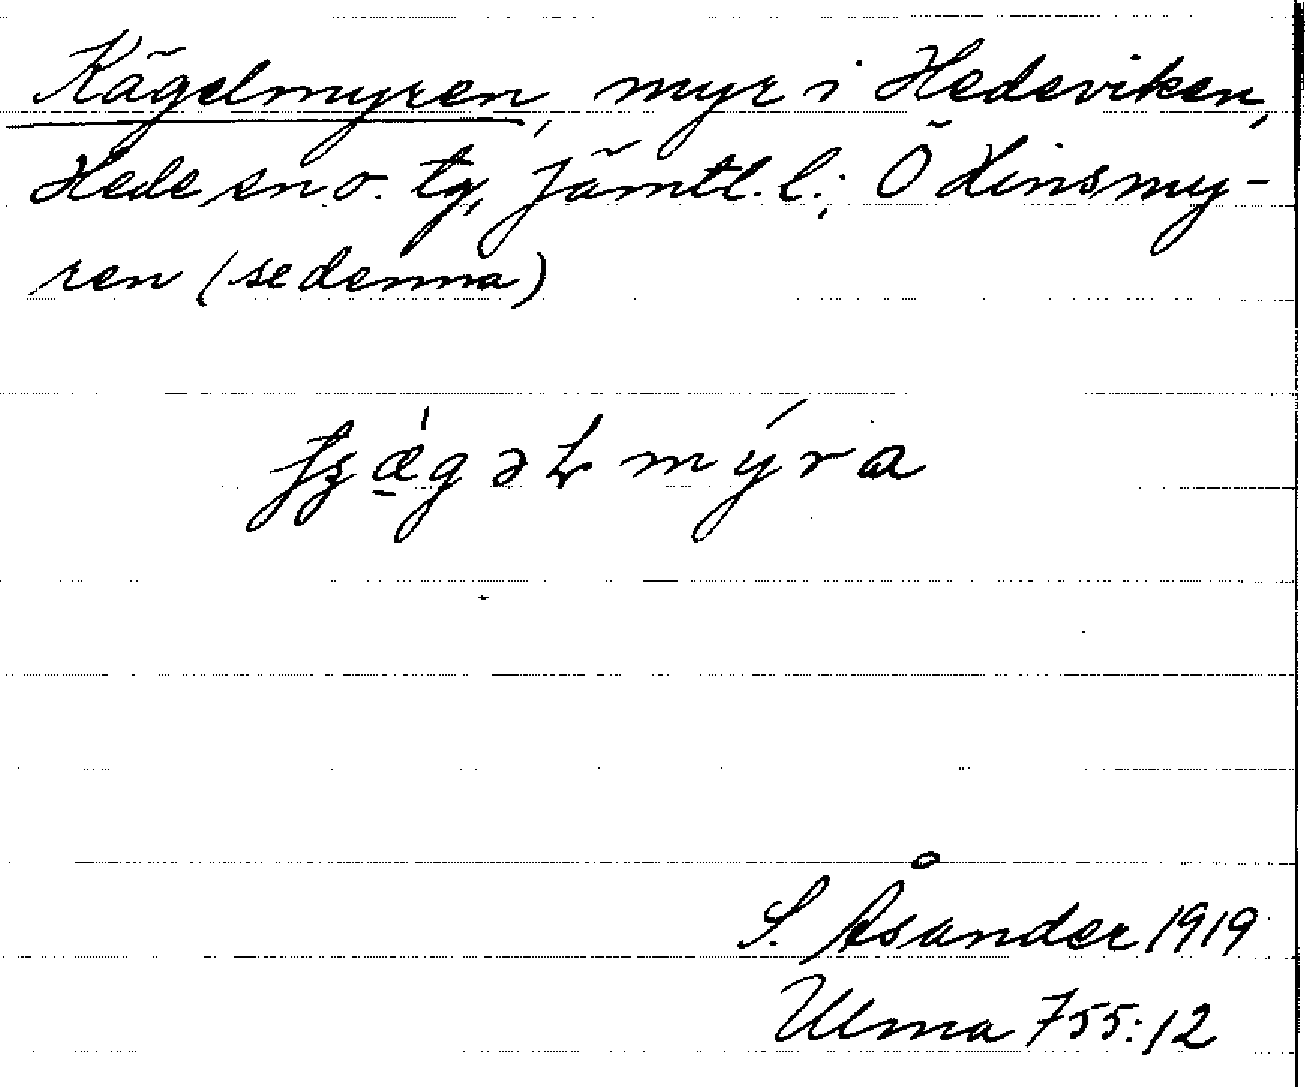 Kägelmyren, myr i Hedeviken,
Hede sn o. tg, Jämtl. l.; Ö Linsmy-
ren (se denna)
ʃʒǽgəɫmýra
S. Åsander 1919
Ulma 755:12